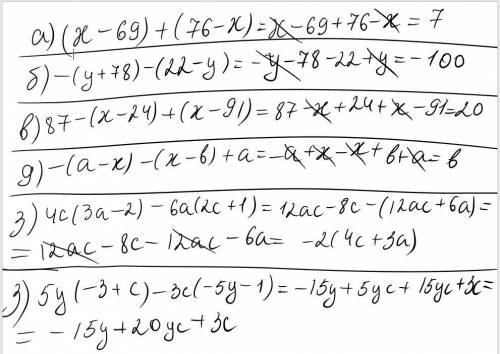 а) (x - 69) + (76 - x) = x - 69 + 76 - x = 7
б) -(y + 78) - (22 - y) = -y - 78 - 22 + y = -100
в) 87 - (x - 24) + (x - 91) = 87 - x + 24 + x - 91 = 20
д) -(a - x) - (x - в) + a = -a + x - x + в + a = в
з) 4c(3a - 2) - 6a(2c + 1) = 12ac - 8c - (12ac + 6a) =
= 12ac - 8c - 12ac - 6a = -2(4c + 3a)
з) 5y(-3 + c) - 3c(-5y - 1) = -15y + 5yc + 15yc + 3c =
= -15y + 20yc + 3c